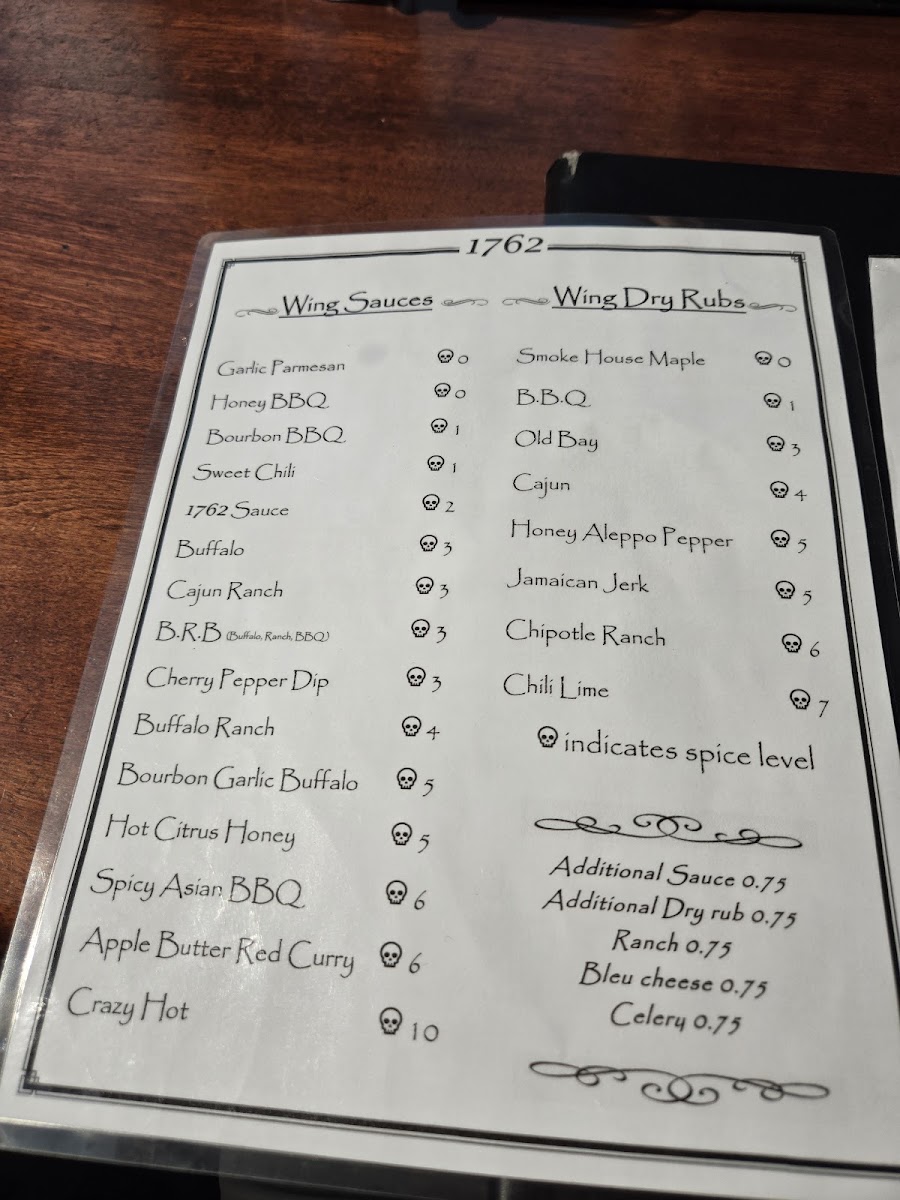 1762
Wing Sauces
Garlic Parmesan 0
Honey BBQ 0
Bourbon BBQ 1
Sweet Chili 1
1762 Sauce 2
Buffalo 3
Cajun Ranch 3
B.R.B (Buffalo, Ranch, BBQ) 3
Cherry Pepper Dip 3
Buffalo Ranch 4
Bourbon Garlic Buffalo 5
Hot Citrus Honey 5
Spicy Asian BBQ 6
Apple Butter Red Curry 6
Crazy Hot 10
Wing Dry Rubs
Smoke House Maple 0
B.B.Q 1
Old Bay 3
Cajun 4
Honey Aleppo Pepper 5
Jamaican Jerk 5
Chipotle Ranch 6
Chili Lime 7
indicates spice level
Additional Sauce 0.75
Additional Dry rub 0.75
Ranch 0.75
Bleu cheese 0.75
Celery 0.75